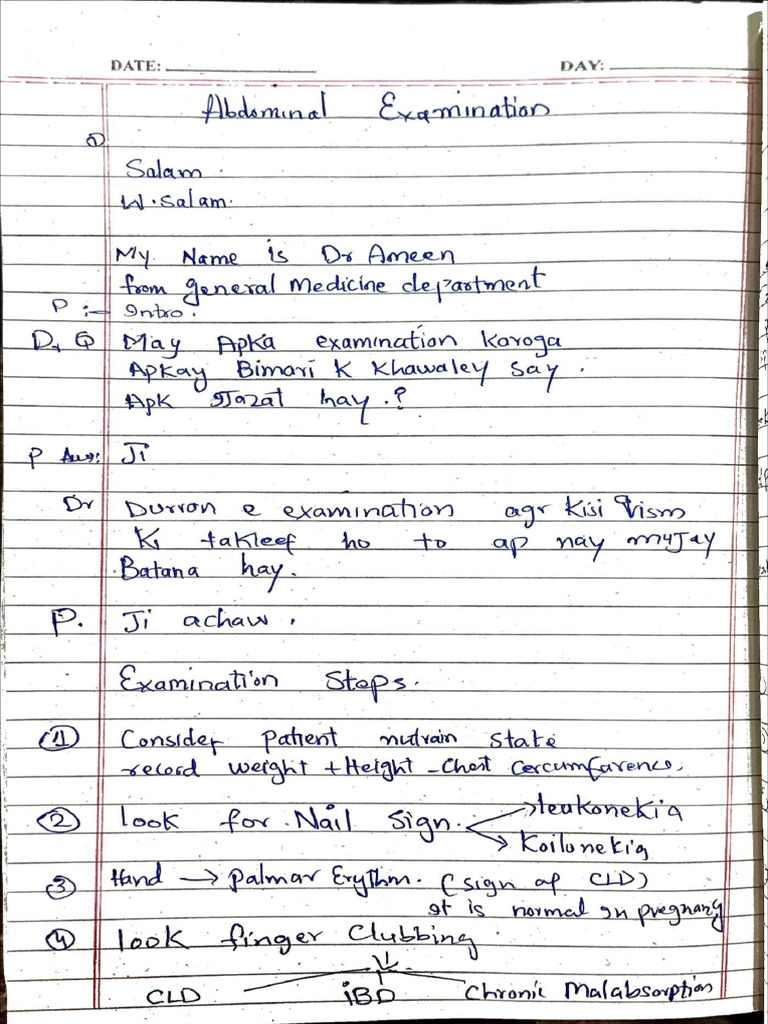 DATE: DAY:
Abdominal Examination
Salam.
W.salam.
My Name is Dr Ameen
from general Medicine department
P :- Intro.
Dr, Q May Apka examination Karoga
Apkay Bimari K Khawaley say.
Apk Ijazat hay.?
P Ans: Ji
Dr Durron e examination agr kisi Qism
Ki takleef ho to ap nay mujay
Batana hay.
P. Ji achaw.
Examination Steps.
1 Consider patient nutrain state
record weight + Height - Chest Cercumfarence.
2 look for Nail Sign. → leukonekia
→ Koilonekia
3 Hand → Palmar Erythm. (sign of CLD)
It is normal In pregnangy
4 look finger Clubbing.
CLD IBD Chronic Malabsorption